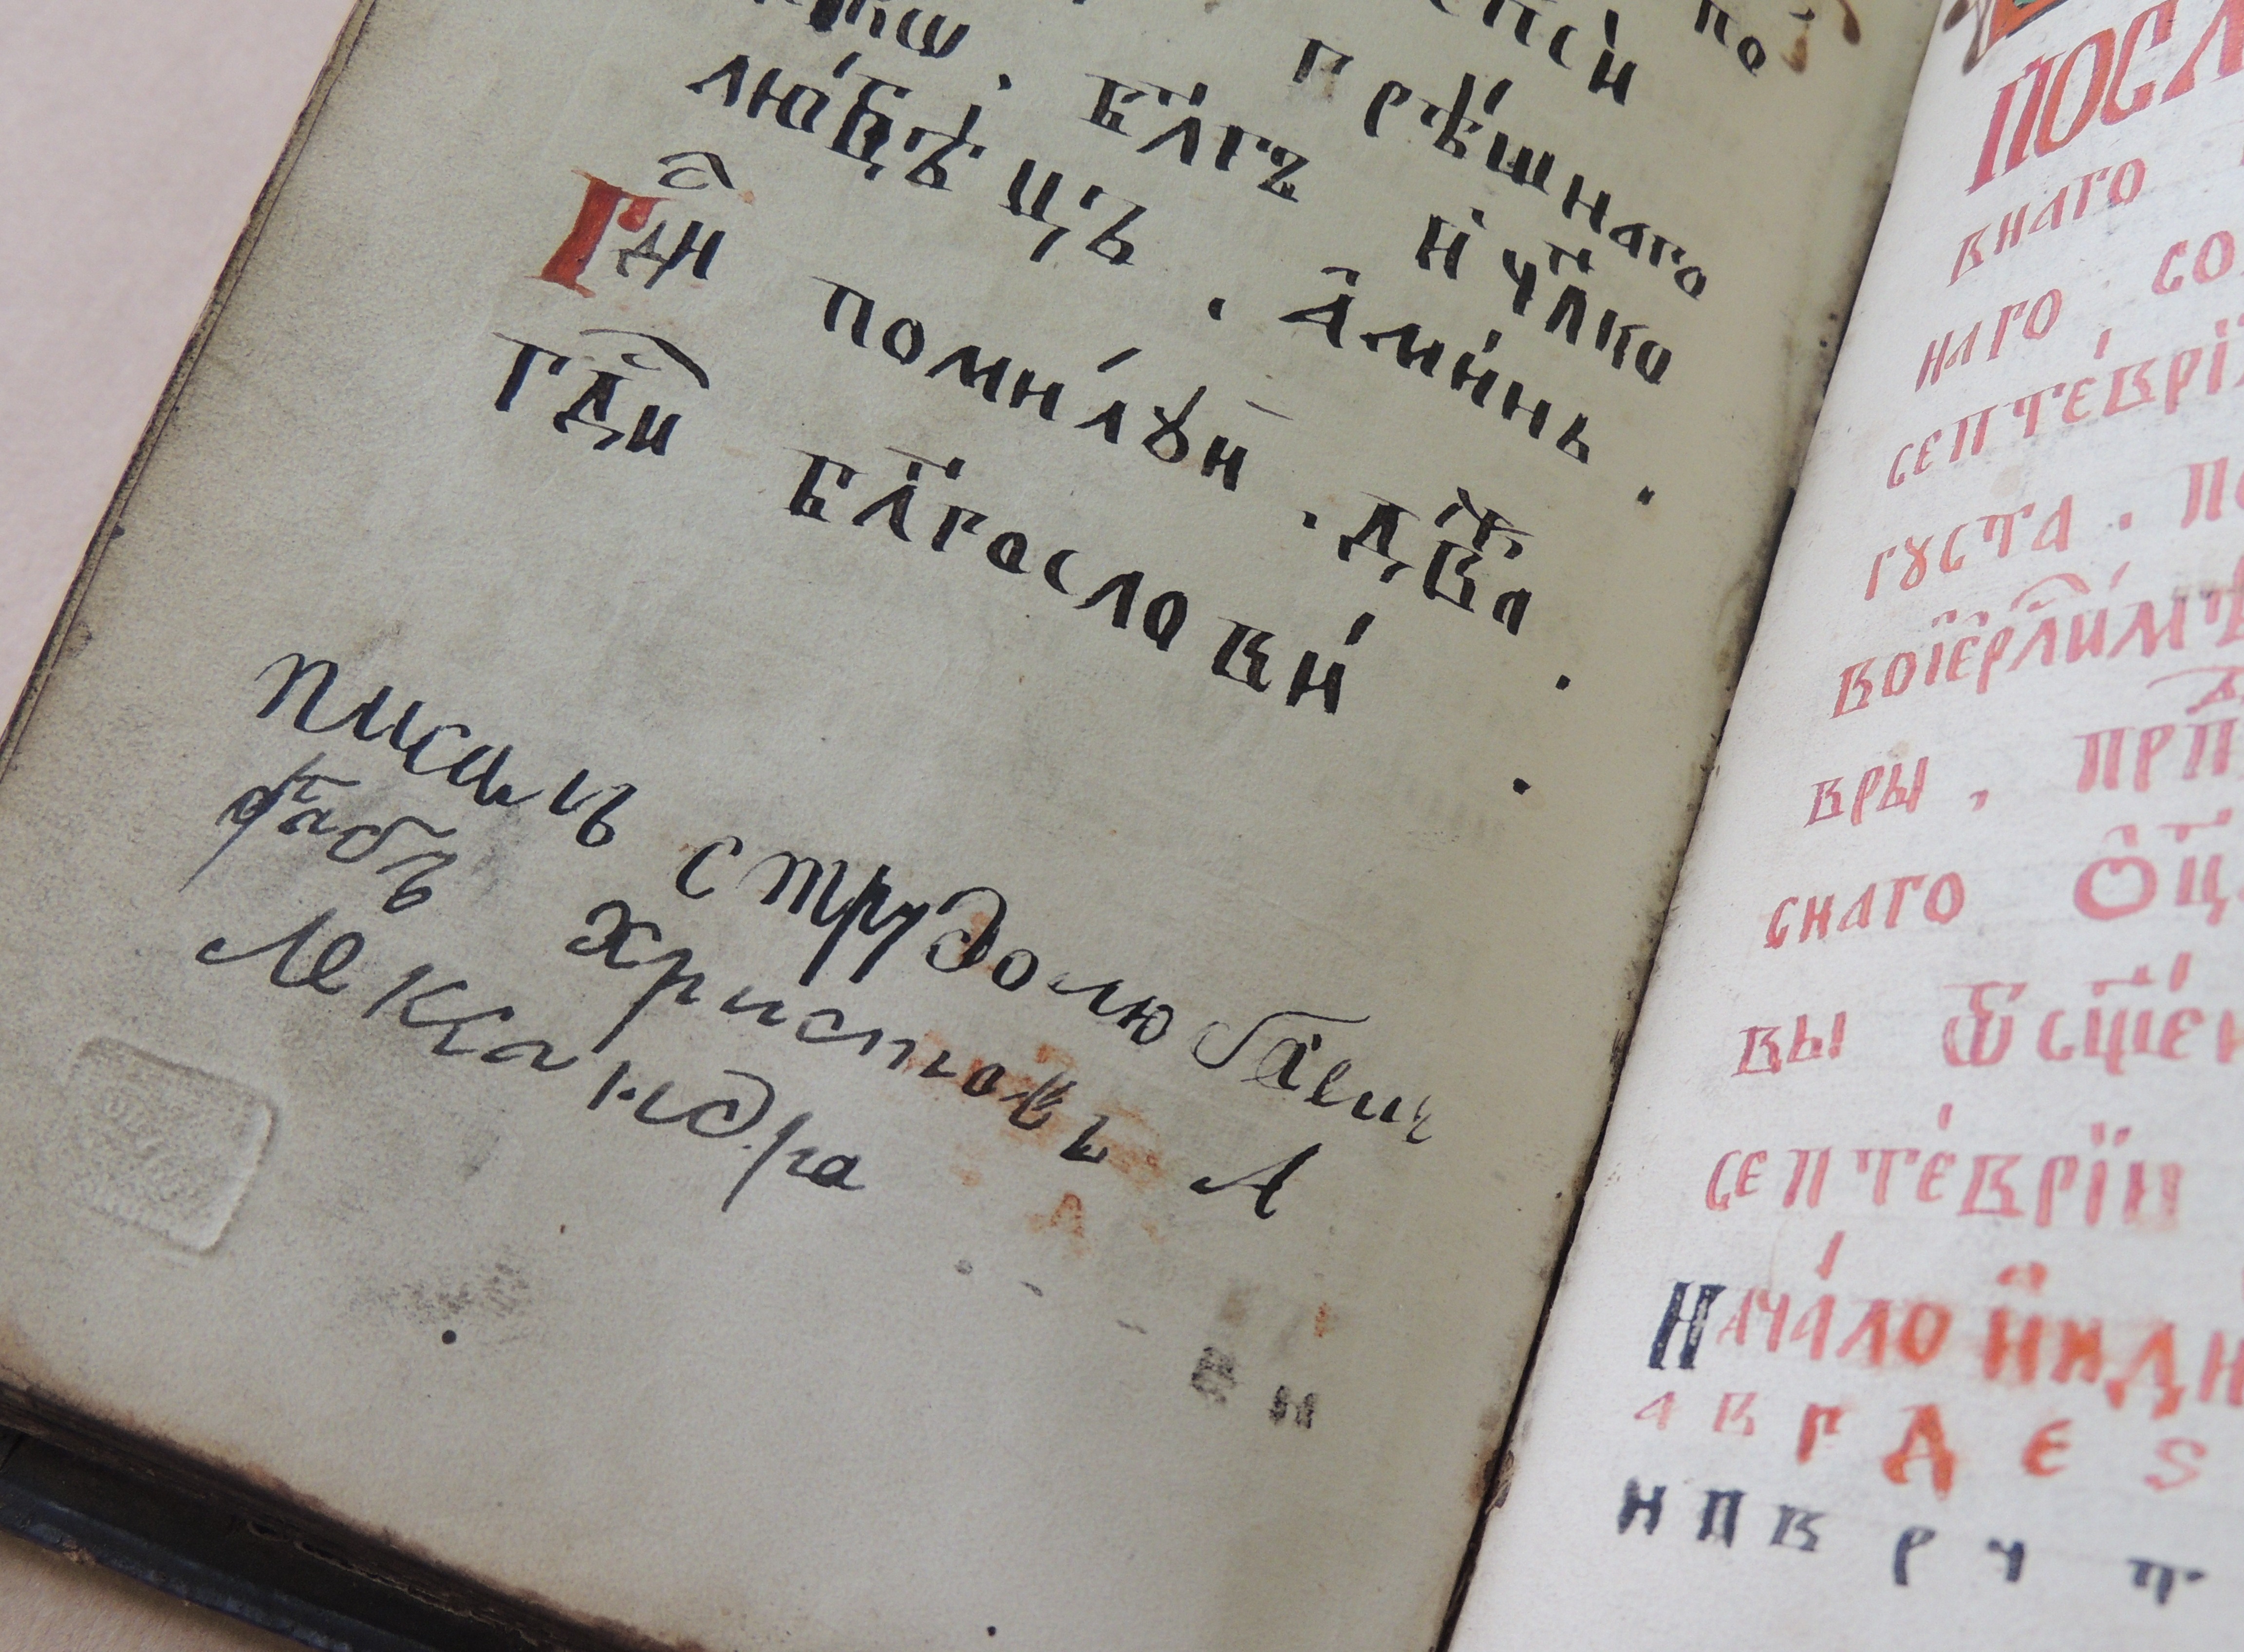 по
грѣ́шнаго
бл҃гъ и҆ чл҃ко
лю́бѣцъ . А҆ми́нь .
Гд҃и поми́лꙋй . два .
Гд҃и бл҃гослови́ .
писалъ с трудолюбіемъ
рабъ христовъ А
лександра
ПОСЛ
внаго
наго со
септе́врі
густа . п
воіерл҃и́мѣ
вры , прп
снаго ѻц
вы ѿ сщ҃ен
септе́врїи
Нача́ло инди
а в г д е ѕ
н п в р ч п